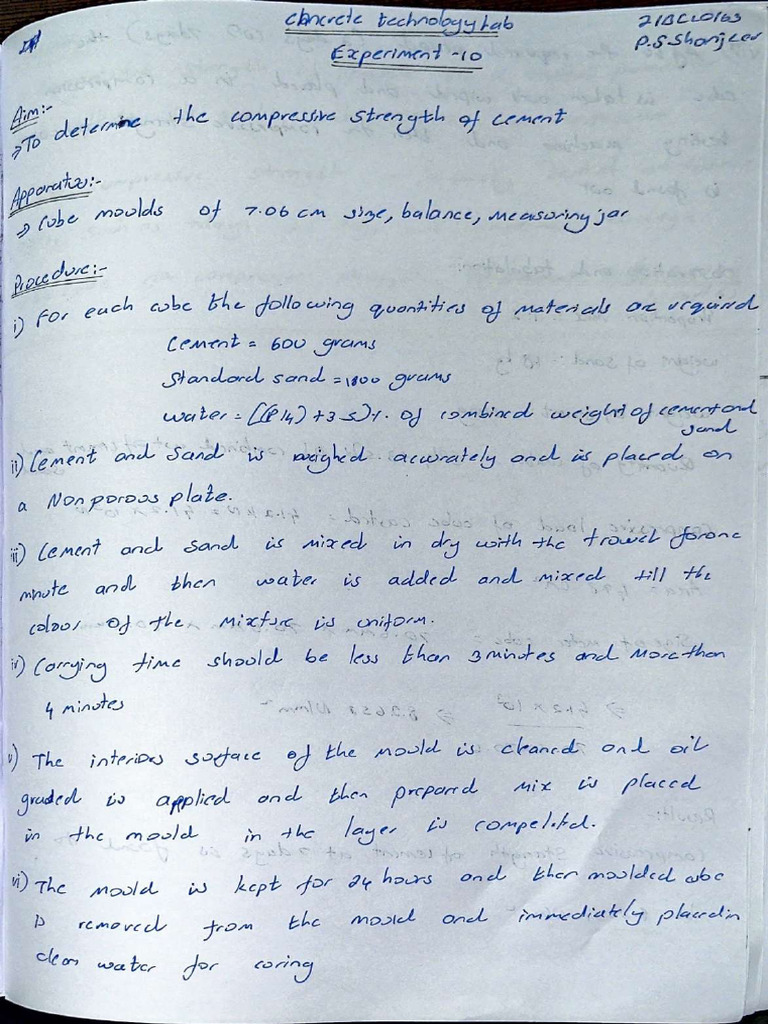 Concrete technology Lab
21BCL0103
Experiment -10
P.S Shanjeev
Aim:-
⇒ To determine the compressive strength of cement
Apparatus:-
⇒ Cube moulds of 7.06 cm size, balance, measuring jar
Procedure:-
i) For each cube the following quantities of materials are required
Cement = 600 grams
Standard sand = 1800 grams
water = [(P/4) + 3.5)%. of combined weight of cement and
sand
ii) Cement and sand is weighed accurately and is placed on
a Non porous plate.
iii) Cement and sand is mixed in dry with the trowel for one
minute and then water is added and mixed till the
colour of the mixture is uniform.
iv) Carrying time should be less than 3 minutes and more than
4 minutes
v) The interior surface of the mould is cleaned and oil
graded is applied and then prepared mix is placed
in the mould in the layer is compeleted.
vi) The mould is kept for 24 hours and then moulded cube
is removed from the mould and immediately placed in
clean water for curing